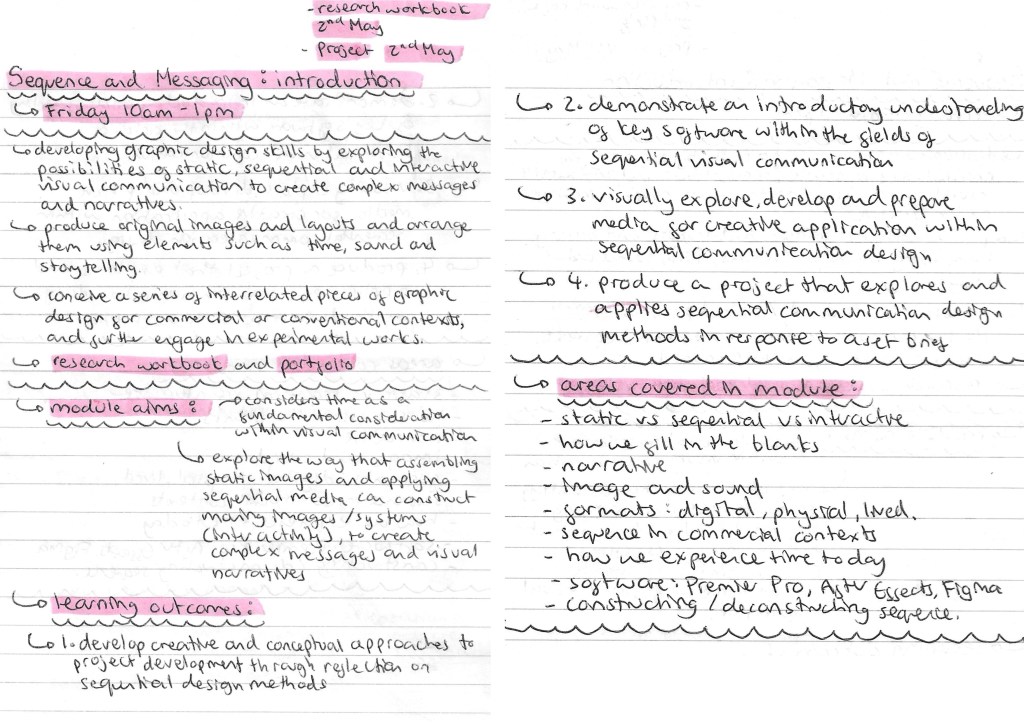 - research workbook
2nd May
- project 2nd May
Sequence and Messaging: introduction
Friday 10am - 1pm
developing graphic design skills by exploring the
possibilities of static, sequential and interactive
visual communication to create complex messages
and narratives.
produce original images and layouts and arrange
them using elements such as time, sound and
storytelling.
conceive a series of interrelated pieces of graphic
design for commercial or conventional contexts,
and further engage in experimental works.
research workbook and portfolio
module aims: considers time as a
fundamental consideration
within visual communication
explore the way that assembling
static images and applying
sequential media can construct
moving images/systems
(interactivity), to create
complex messages and visual
narratives
learning outcomes:
1. develop creative and conceptual approaches to
project development through reflection on
sequential design methods
2. demonstrate an introductory understanding
of key software within the fields of
sequential visual communication
3. visually explore, develop and prepare
media for creative application within
sequential communication design
4. produce a project that explores and
applies sequential communication design
methods in response to a set brief
areas covered in module:
- static vs sequential vs intractve
- how we fill in the blanks
- narrative
- image and sound
- formats: digital, physical, lived.
- sequence in commercial contexts
- how we experience time today
- software: Premier Pro, Aftr Effects, Figma
- constructing / deconstructing seqence.